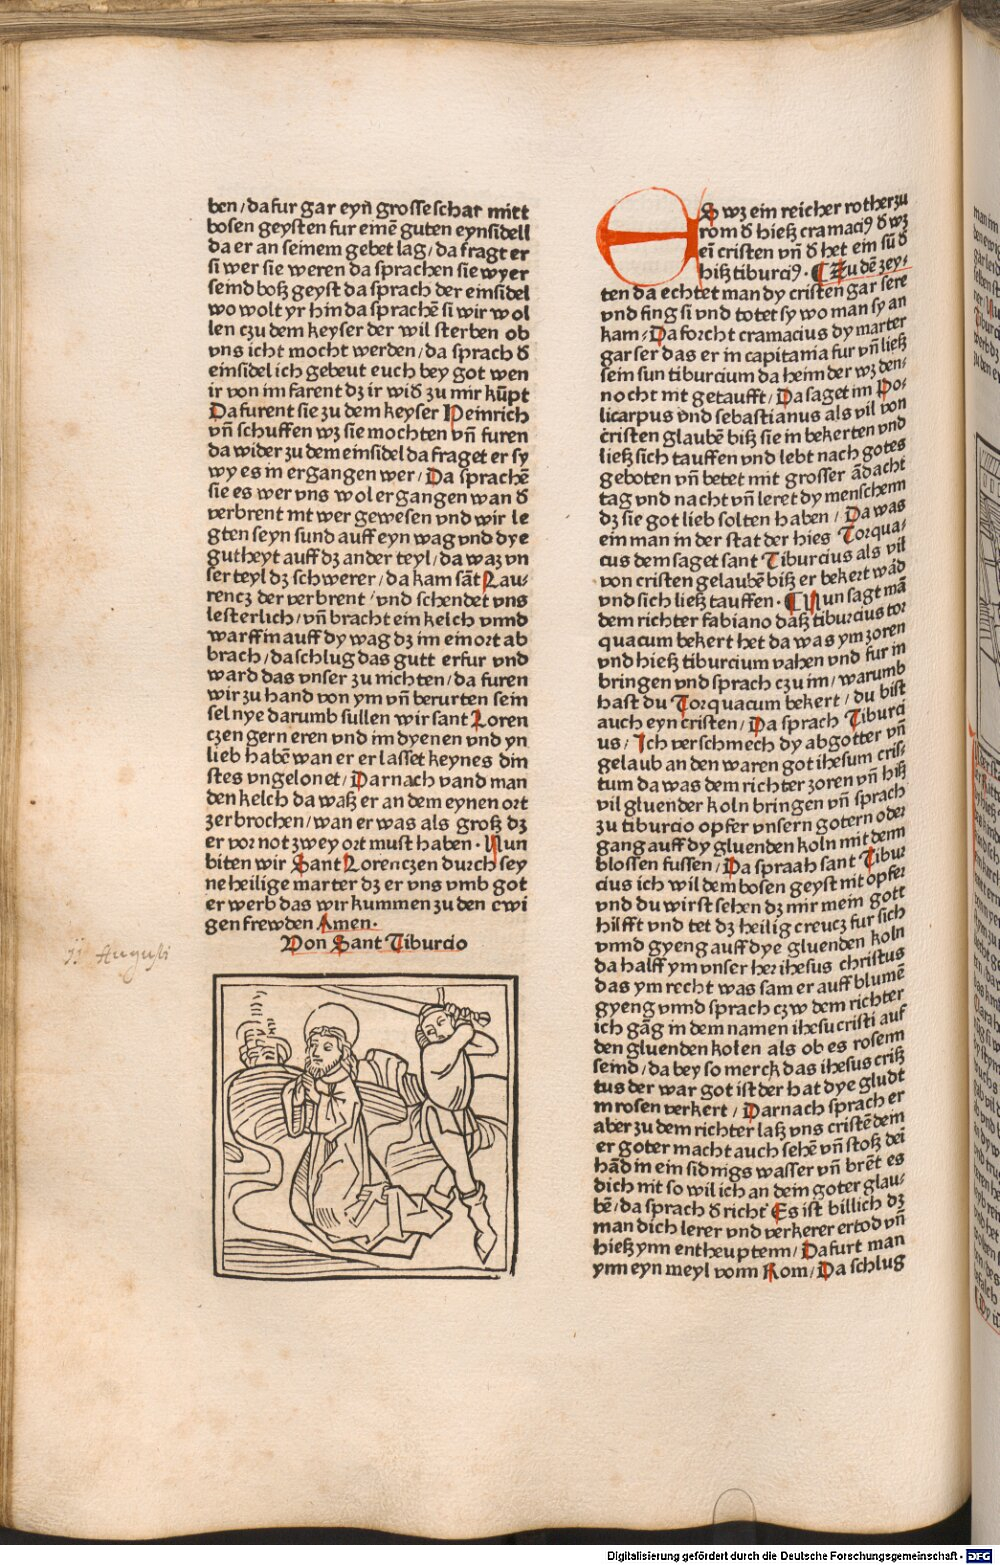 ben/da fur gar eyn̄ grosse schar mitt
bosen geysten fur emē guten eynsidell
da er an seinem gebet lag/da fragt er
si wer sie weren da sprachen sie wyer
semd boß geyst da sprach der einsidel
wo wolt yr hin da sprachē si wir wol
len czu dem keyser der wil sterben ob
vns icht mocht werden/da sprach đ
einsidel ich gebeut euch bey got wen
ir von im farent dz ir wid̄ zu mir kūpt
Da furent sie zu dem keyser Heinrich
vn̄ schuffen wz sie mochten vn̄ furen
da wider zu dem einsidel da fraget er sy
wy es in ergangen wer/Da sprachē
sie es wer vns wol ergangen wan đ
verbrent nit wer gewesen vnd wir le
gten seyn sund auff eyn wag vnd dye
gutheyt auff dz ander teyl/da waz vn
ser teyl dz schwerer/da kam sāt Lau-
rencz der verbrent/vnd schendet vns
lesterlich/vn̄ bracht ein kelch vnnd
warff in auff dy wag dz im ein ort ab
brach/da schlug das gutt erfur vnd
ward das vnser zu nichten/da furen
wir zu hand von ym vn̄ berurten sein
sel nye darumb sullen wir sant Loren
czen gern eren vnd im dyenen vnd yn
lieb habē wan er er lasset keynes din
stes vngelonet/Darnach vand man
den kelch da waß er an dem eynen ort
zerbrochen/wan er was als groß dz
er vor not zwey ort must haben. Nun
biten wir Sant Lorenczen durch sey
ne heilige marter dz er vns vmb got
er werb das wir kummen zu den ewi
gen frewden Amen.
Von Sant Tiburcio
11 Augusti
ES wz ein reicher rother zu
rom đ hieß cramaciꝰ đ wz
eī cristen vn̄ đ het ein sū đ
hiß tiburciꝰ. Zu dē zey-
ten da echtet man dy cristen gar sere
vnd fing si vnd totet sy wo man sy an
kam/Da forcht cramacius dy marter
gar ser das er in capitania fur vn̄ ließ
sein sun tiburcium da heim der wz den-
nocht nit getaufft/Da saget im Po-
licarpus vnd sebastianus als vil von
cristen glaubē biß sie in bekerten vnd
ließ sich tauffen vnd lebt nach gotes
geboten vn̄ betet mit grosser ādacht
tag vnd nacht vn̄ leret dy menschenn
dz sie got lieb solten haben/Da was
ein man in der stat der hies Torqua-
cus dem saget sant Tiburcius als vil
von cristen gelaubē biß er bekert wād
vnd sich ließ tauffen. Nun sagt mā
dem richter fabiano daß tiburcius tor
quacum bekert het da was ym zoren
vnd hieß tiburcium vahen vnd fur in
bringen vnd sprach czu im/warumb
hast du Torquacum bekert/du bist
auch eyn cristen/Da sprach Tiburci
us/Ich verschmech dy abgotter vn̄
gelaub an den waren got ihesum cris-
tum da was dem richter zoren vn̄ hiß
vil gluender koln bringen vn̄ sprach
zu tiburcio opfer vnsern gotern oder
gang auff dy gluenden koln mit denn
blossen fussen/Da spraah sant Tibur
cius ich wil dem bosen geyst nit opfer
vnd du wirst sehen dz mir mein gott
hilfft vnd tet dz heilig creucz fur sich
vnnd gyeng auff dye gluenden koln
da halff ym vnser her ihesus christus
das ym recht was sam er auff blumē
gyeng vnnd sprach czw dem richter
ich gāg in dem namen ihesu cristi auf
den gluenden kolen als ob es rosenn
semd/da bey so merck das ihesus criß
tus der war got ist der hat dye gludt
in rosen verkert/Darnach sprach er
aber zu dem richter laß vns cristē dem
er goter macht auch sehē vn̄ stoß dei
hād in ein sidnigs wasser vn̄ brēt es
dich nit so wil ich an dein goter glau-
bē/da sprach đ richt' Es ist billich dz
man dich lerer vnd verkerer ertod vn̄
hieß ynn entheuptenn/Da furt man
ynn eyn meyl vonn Rom/Da schlug
Digitalisierung gefördert durch die Deutsche Forschungsgemeinschaft - DFG